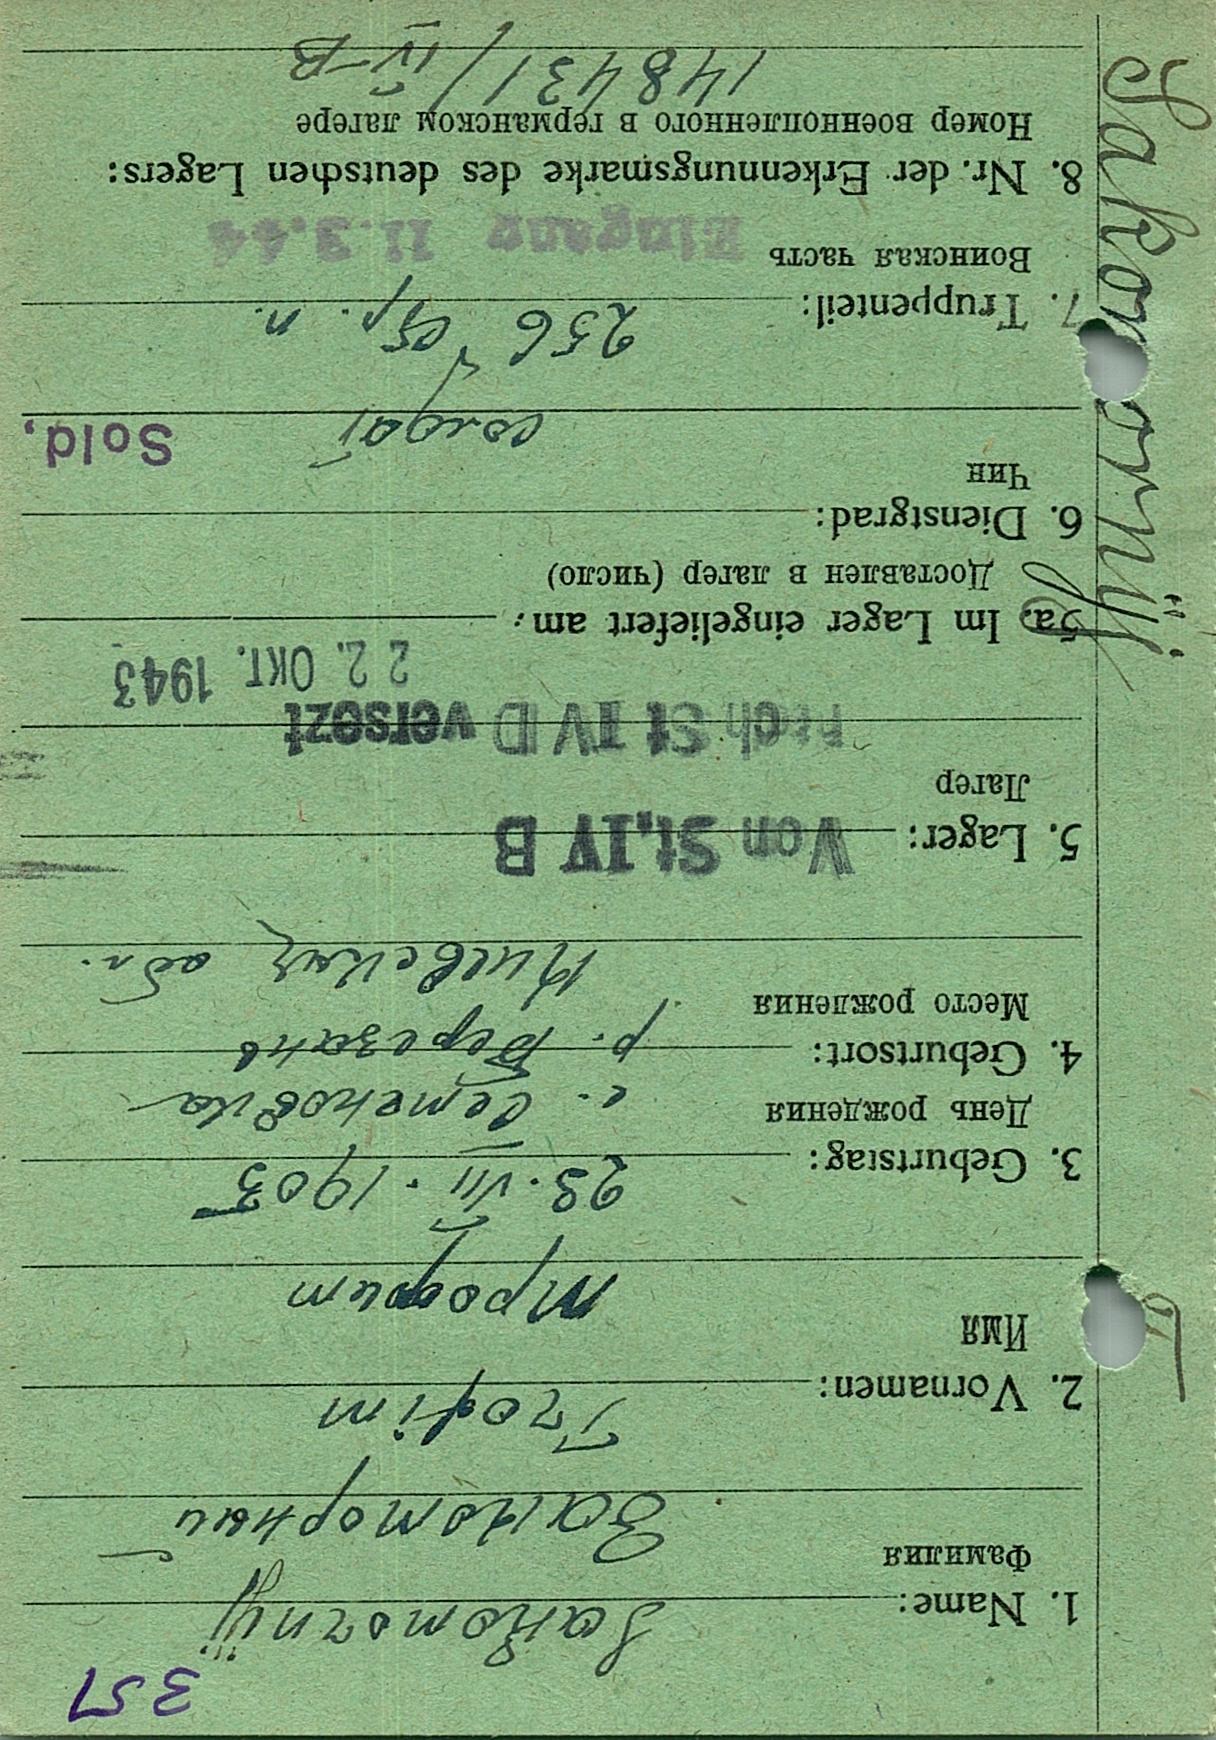 351
Sakomornÿj
1. Name:
Фамилия
Закоморный
Trofim
2. Vornamen:
Имя
Трофим
23. VII. 1903
3. Geburtstag:
День рождения
с. Семеновка
4. Geburtsort: р. Березань
Место рождения
Киевская обл.
5. Lager: Von St. IV B
Лагер
nach St IV D versezt
22. OKT. 1943
5a. Im Lager eingeliefert am:
Доставлен в лагер (число)
6. Dienstgrad:
Чин
солдат Sold.
256 стр. п.
7. Truppenteil:
Воинская часть Eingang 11.3.44
8. Nr. der Erkennungsmarke des deutschen Lagers:
Номер военнопленного в германском лагере
148431/IV-B